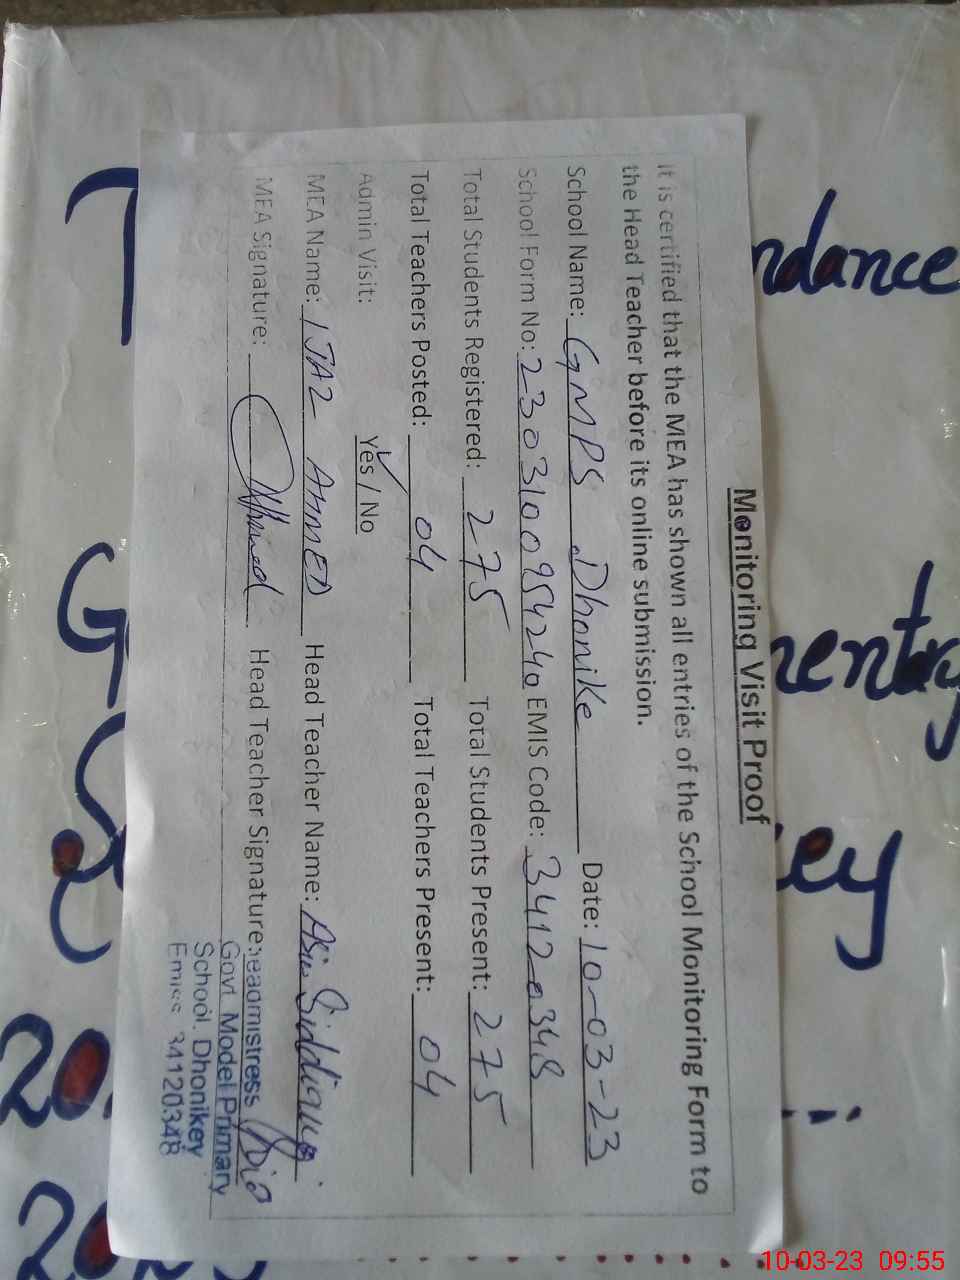 Monitoring Visit Proof
It is certified that the MEA has shown all entries of the School Monitoring Form to
the Head Teacher before its online submission.
School Name: GMPS Dhonike Date: 10-03-23
School Form No: EMIS Code: 34120348
Total Students Registered: 275 Total Students Present: 275
Total Teachers Posted: 04 Total Teachers Present: 04
Admin Visit: Yes / No
MEA Name: IJAZ AHMED Head Teacher Name: Siddiqui
MEA Signature: Ahmed Head Teacher Signature:
Headmistress
Govt Model Primary
School. Dhonikey
Emiss 34120348
ndance
mentary
key
10-03-23 09:55